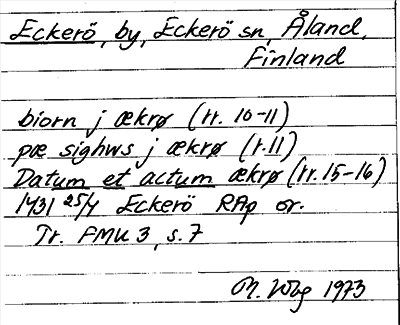 Eckerö, by, Eckerö sn, Åland,
Finland
biorn j ækrø (rr. 10-11)
pæ sighws j ækrø (r.11)
Datum et actum ækrø (rr. 15-16)
1431 25/4 Eckerö RAp or.
Tr. FMU 3, s. 7
M. Wbg 1973